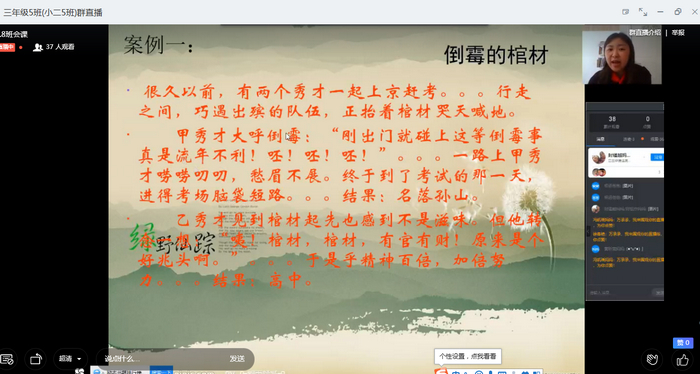 三年级5班(小二5班)群直播
群直播介绍 | 举报
37 人观看
案例一：
倒霉的棺材
很久以前，有两个秀才一起上京赶考。。。行走
之间，巧遇出殡的队伍，正抬着棺材哭天喊地。
甲秀才大呼倒霉：“刚出门就碰上这等倒霉事
真是流年不利！呸！呸！呸！”。。。一路上甲秀
才唠唠叨叨，愁眉不展。终于到了考试的那一天，
进得考场脑袋短路。。。结果：名落孙山。
乙秀才见到棺材起先也感到不是滋味。但他转
棺材，棺材，有官有财！原来是个
好兆头啊。”。。。于是乎精神百倍，加倍努
力。。。结果：高中。
绿野仙踪
36
0
赞 0
超清
说点什么...
发送
个性设置，点我看看